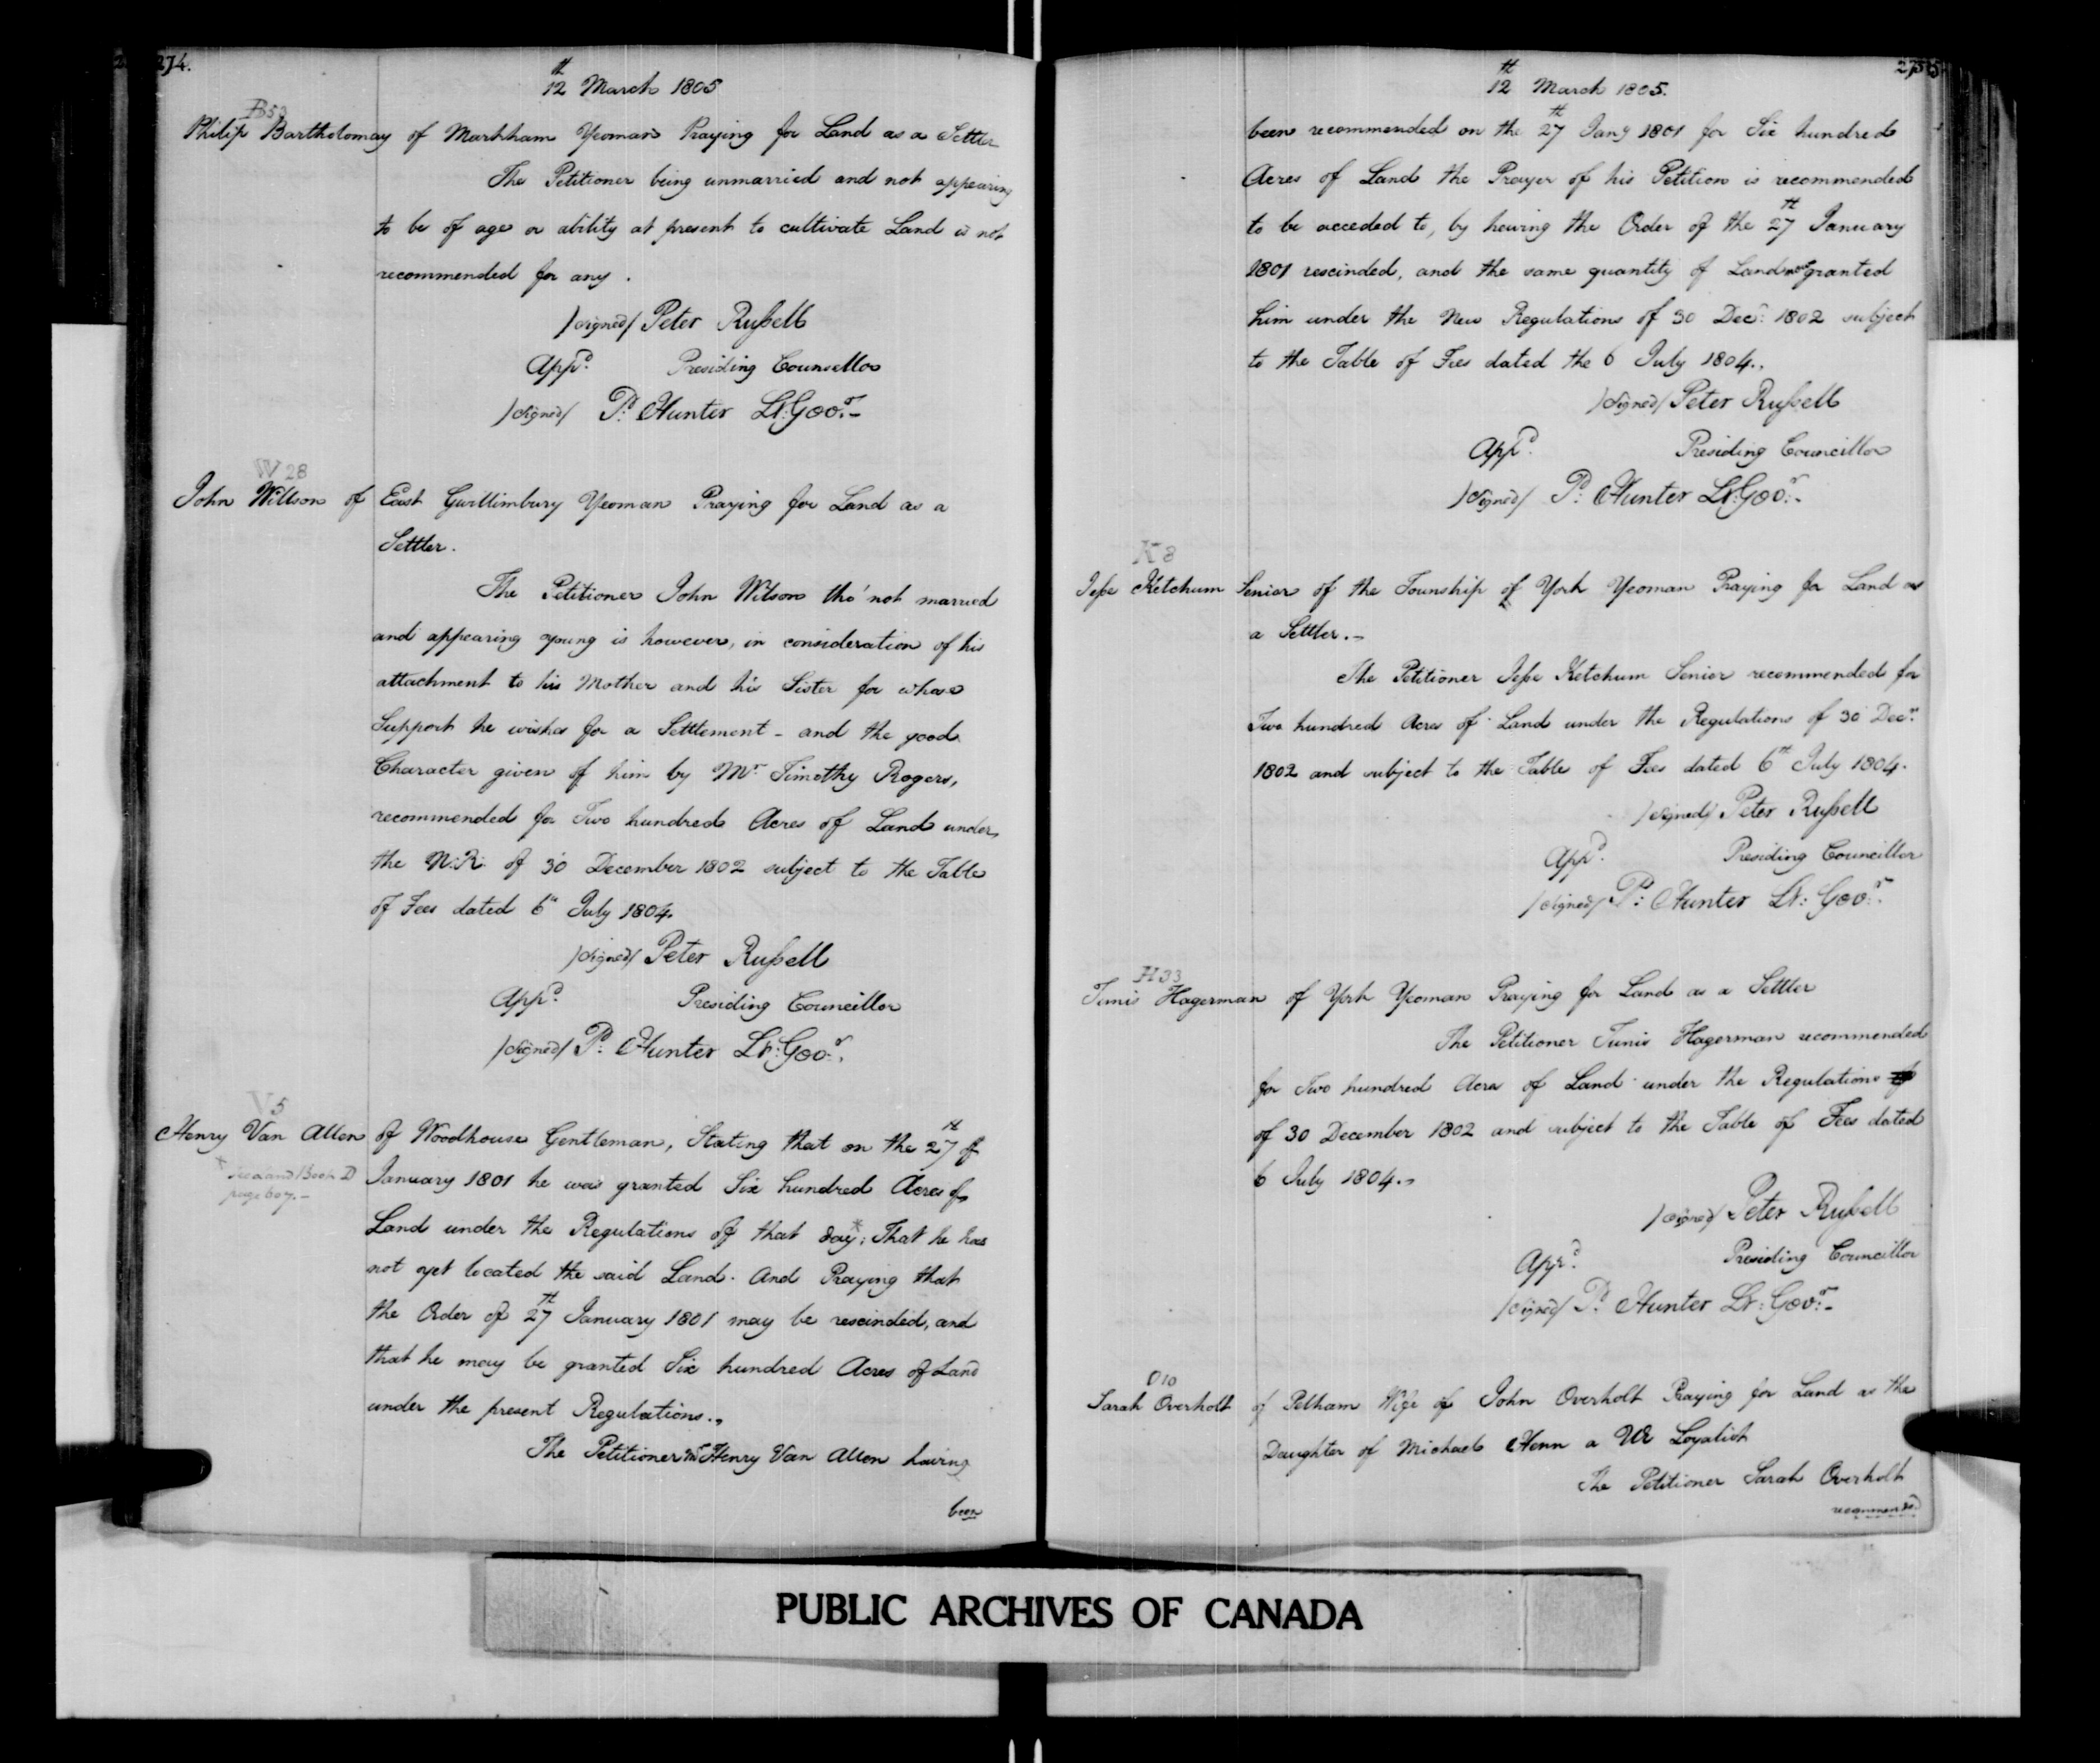 274.
12th March 1805
B53
Philip Bartholomay of Markham Yeoman Praying for Land as a Settler
The Petitioner being unmarried and not appearing
to be of age or ability at present to cultivate Land is not
recommended for any.
/signed/ Peter Russell
Appd. Presiding Counsellor
/signed/ P: Hunter Lt: Govr.-
W 28
John Willson of East Gwillimbury Yeoman Praying for Land as a
Settler.
The Petitioner John Wilson tho' not married
and appearing young is however, in consideration of his
attachment to his Mother and his Sister for whose
Support he wishes for a Settlement - and the good
Character given of him by Mr. Timothy Rogers,
recommended for Two hundred Acres of Land under
the N:R: of 30 December 1802 subject to the Table
of Fees dated 6th July 1804.
/signed/ Peter Russell
Appd. Presiding Councillor
/signed/ P: Hunter Lt: Govr.
V5
Henry Van Allen of Woodhouse Gentleman, Stating that on the 27th of
* See Land Book D
page 607.-
January 1801 he was granted Six hundred Acres of
Land under the Regulations of that day*; That he has
not yet located the said Land. And Praying that
the Order of 27th January 1801 may be rescinded, and
that he may be granted Six hundred Acres of Land
under the present Regulations.,
The Petitioner Mr Henry Van Allen having
been
275
12th March 1805.
been recommended on the 27th Jany 1801 for Six hundred
Acres of Land the Prayer of his Petition is recommended
to be acceded to, by having the Order of the 27th January
1801 rescinded, and the same quantity of Land now granted
him under the New Regulations of 30 Decr: 1802 subject
to the Table of Fees dated the 6 July 1804.,
/signed/ Peter Russell
Appd. Presiding Councillor
/signed/ P: Hunter Lt: Govr.-
K8
Jesse Ketchum Senior of the Township of York Yeoman Praying for Land as
a Settler.-
The Petitioner Jesse Ketchum Senior recommended for
Two hundred Acres of Land under the Regulations of 30 Decr.
1802 and subject to the Table of Fees dated 6th July 1804.
/signed/ Peter Russell
Appd. Presiding Councillor
/signed/ P: Hunter Lt: Govr.
H33
Tunis Hagerman of York Yeoman Praying for Land as a Settler
The Petitioner Tunis Hagerman recommended
for Two hundred Acres of Land under the Regulations of
of 30 December 1802 and subject to the Table of Fees dated
6 July 1804.,
/signed/ Peter Russell
Appd. Presiding Councillor
/signed/ P: Hunter Lt: Govr.-
O10
Sarah Overholt of Pelham Wife of John Overholt Praying for Land as the
Daughter of Michael Henn a UE Loyalist
The Petitioner Sarah Overholt
recommended
PUBLIC ARCHIVES OF CANADA